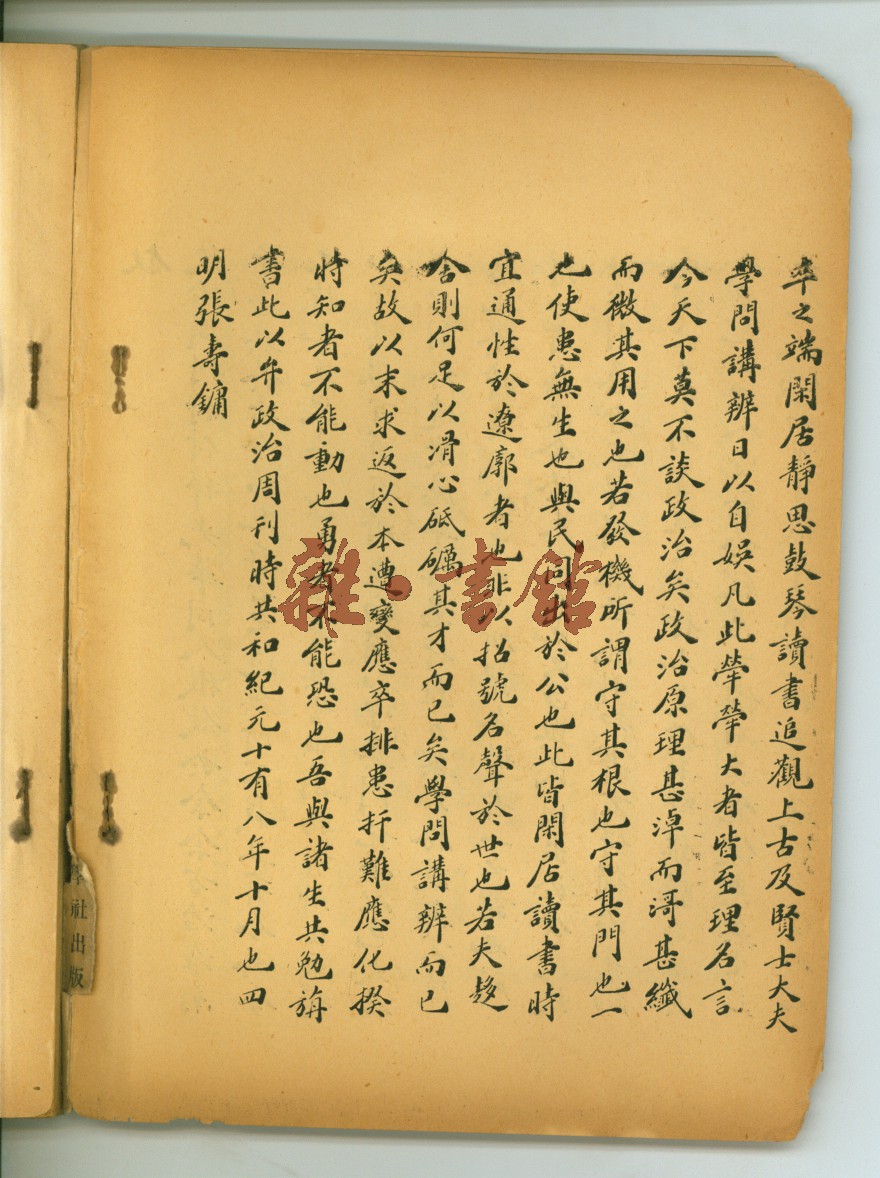 卒之端閑居靜思鼓琴讀書追觀上古及賢士大夫
學問講辨日以自娛凡此犖犖大者皆至理名言
今天下莫不談政治矣政治原理甚淖而滒甚纖
而微其用之也若發機所謂守其根也守其門也一
也使患無生也與民同出於公也此皆閑居讀書時
宜通性於遼廓者也非以招號名聲於世也若夫趍
舍則何足以滑心砥礪其才而已矣學問講辨而已
矣故以末求返於本遭變應卒排患扞難應化揆
時知者不能動也勇者不能恐也吾與諸生共勉旃
書此以弁政治周刊時共和紀元十有八年十月也四
明張壽鏞
雜·書館
學社出版